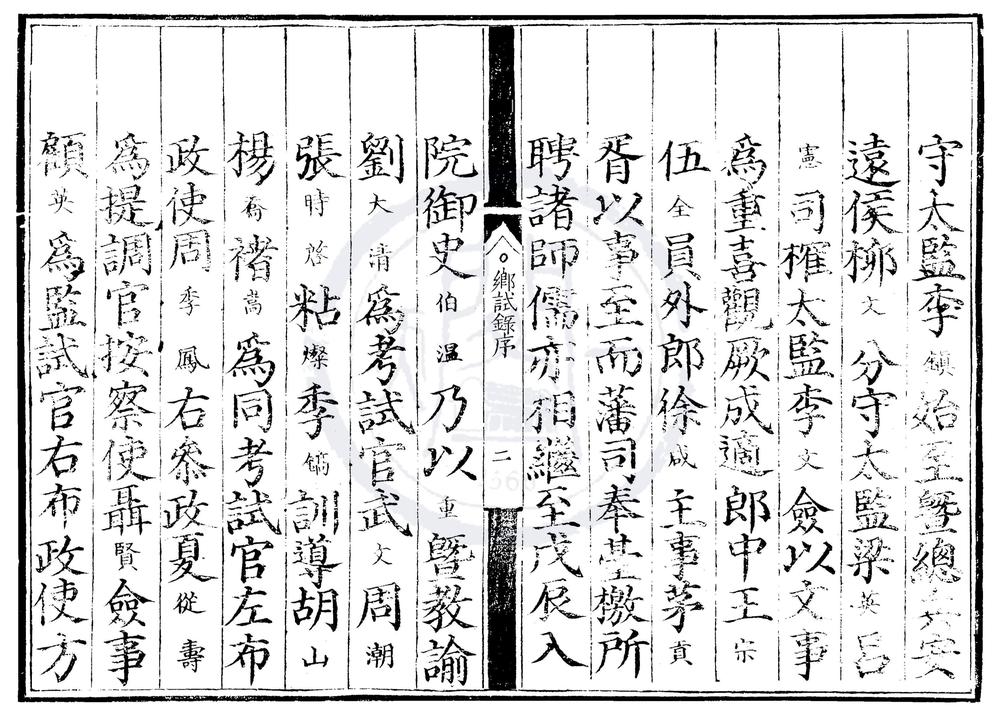 守太監李鎮始至曁總兵安
遠侯柳文分守太監梁英呂
憲司榷太監李文僉以文事
爲重喜觀厥成適郎中王宗
伍全員外郎徐咸主事茅貢
胥以事至而藩司奉臺檄所
聘諸師儒亦相繼至戊辰入
鄉試錄序 二
院御史伯温乃以重曁教諭
劉大清爲考試官武文周潮
張時啓粘燦季鎬訓導胡山
楊喬褚嵩爲同考試官左布
政使周季鳳右叅政夏從壽
爲提調官按察使聶賢僉事
顧英爲監試官右布政使方